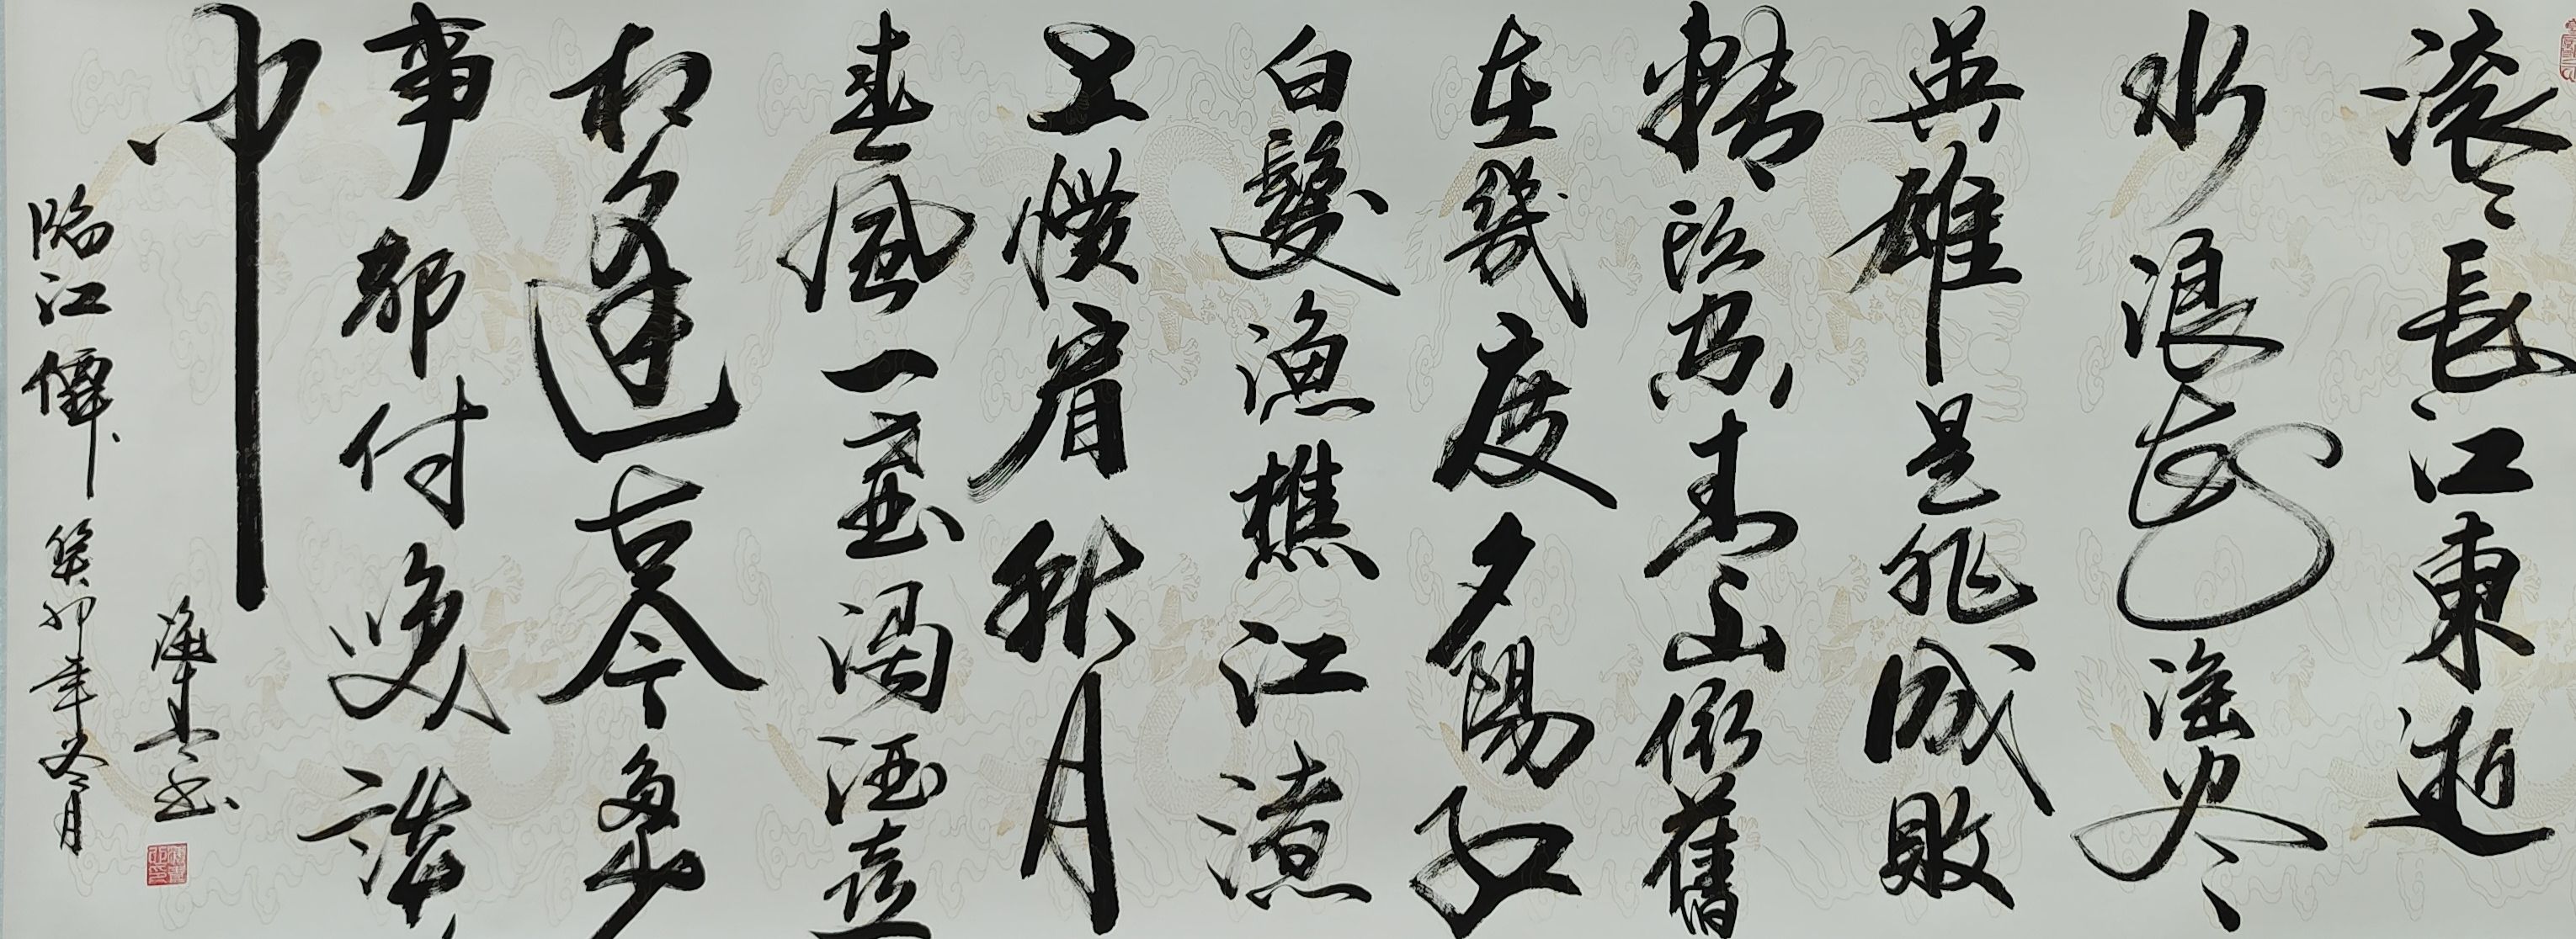 滚滚長江東逝
水浪花淘尽
英雄是非成敗
转頭空青山依舊
在幾度夕陽红
白髮渔樵江渚
上慣看秋月
春風一壺濁酒喜
相逢古今多少
事都付笑談
中
书
臨江僊 癸卯年冬月